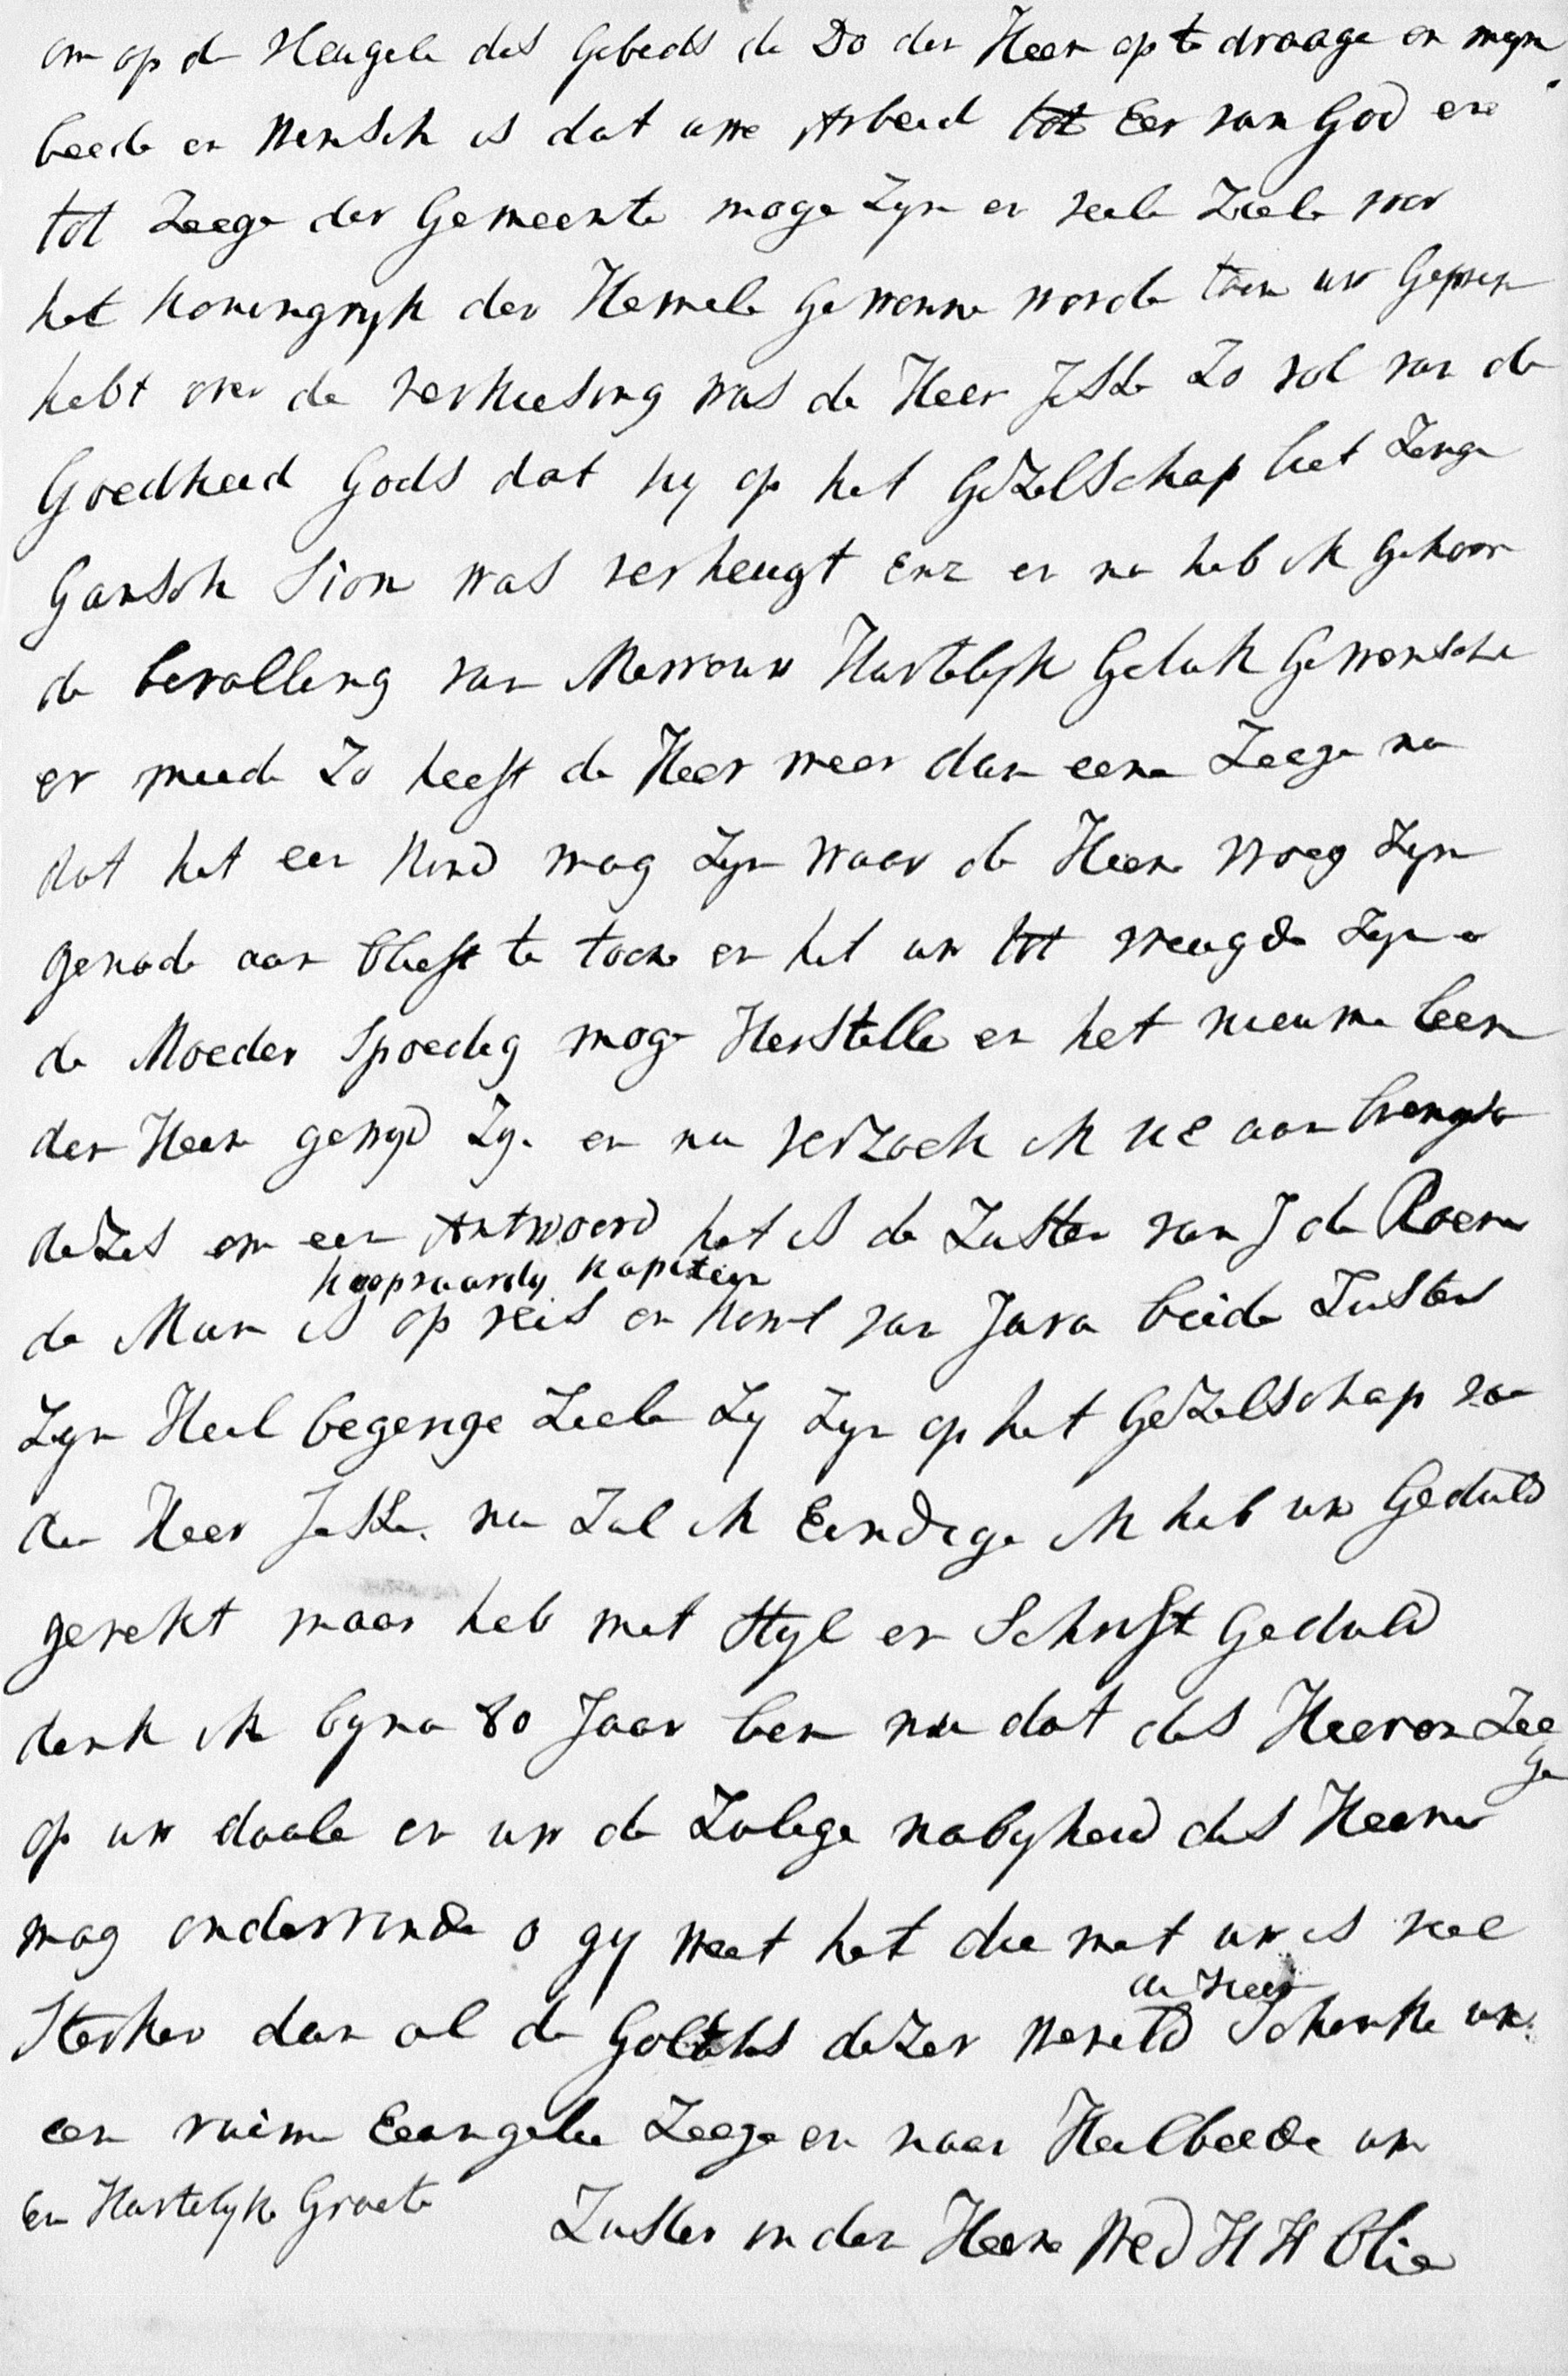 om op de vleugele des Gebeds de Do der Heer op te draage en myn
beede en wensch is dat uwe Arbeid tot Eer van God en
tot Zeege der Gemeente moge Zyn en veele Ziele voor
het koningryk der Hemele Gewonne worde toen uw
hebt over de verkiesing was de Heer Zo vol van de
Goedheid Gods dat hy op het GeZelschap liet Zinge
Gansch Sion was verheugt Enz en nu heb ik gehoor
de bevalling van Mevrouw Hartelyk Geluk Gewensche
er meede Zo heeft de Heer weer dan eene Zeege nu
dat het een kind mag Zyn waar de Heer vroeg Zyn
genade aan blieft te toone en het uw tot vreugde Zyn
de Moeder Spoedig moge Herstelle en het nieuwe leeven
den Heere gewyd Zy en nu verZoek ik UE aan brengster
deZes om een Antwoord het is de Zuster van J de Roever
koopvaardy kapitein
de Man is op reis en komt van Java beide Zusters
Zyn Heil begerige Ziele Zy Zyn op het GeZelschap van
de Heer nu Zal ik Eindige ik heb uw Geduld
gerekt maar heb met Styl en Schrift Geduld
denk ik byna 80 Jaar ben nu dat des Heeren Zee
ge
op uw daale en uw de Zalige nabyheid des Heere
mag ondervinde o gy weet het die met uw is veel
de Heer
Sterker dan al de Goliths deZer wereld Schenke uw
een ruime Eevangelie Zeege en naar Heilbeede uw
en Hartelyke Groete Zuster in den Heere Wed H H Olie